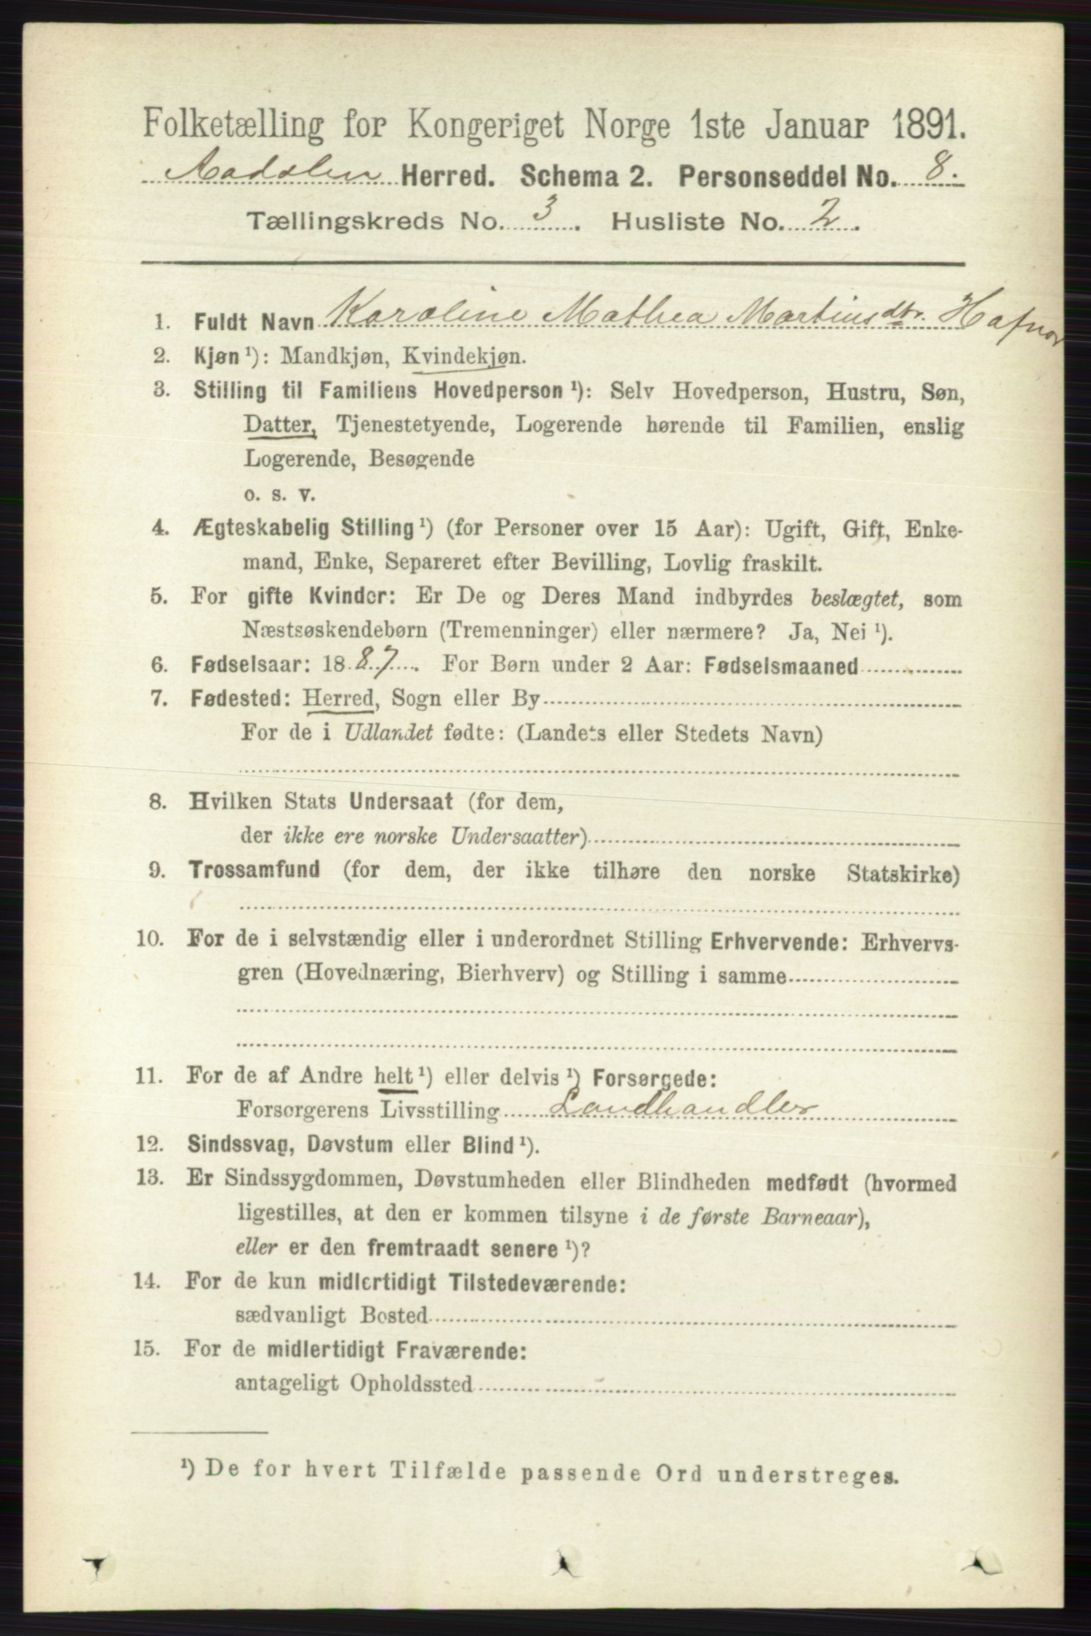 Folketælling for Kongeriget Norge 1ste Januar 1891.
Aadalen Herred. Schema 2. Personseddel No. 8.
Tællingskreds No. 3. Husliste No. 2.
1. Fuldt Navn Karoline Mathea Martinsdtr. Hafnor
2. Kjøn ¹): Mandkjøn, Kvindekjøn.
3. Stilling til Familiens Hovedperson ¹): Selv Hovedperson, Hustru, Søn,
Datter, Tjenestetyende, Logerende hørende til Familien, enslig
Logerende, Besøgende
o. s. v.
4. Ægteskabelig Stilling ¹) (for Personer over 15 Aar): Ugift, Gift, Enke-
mand, Enke, Separeret efter Bevilling, Lovlig fraskilt.
5. For gifte Kvinder: Er De og Deres Mand indbyrdes beslægtet, som
Næstsøskendebørn (Tremenninger) eller nærmere? Ja, Nei ¹).
6. Fødselsaar: 1887. For Børn under 2 Aar: Fødselsmaaned
7. Fødested: Herred, Sogn eller By
For de i Udlandet fødte: (Landets eller Stedets Navn)
8. Hvilken Stats Undersaat (for dem,
der ikke ere norske Undersaatter)
9. Trossamfund (for dem, der ikke tilhøre den norske Statskirke)
10. For de i selvstændig eller i underordnet Stilling Erhvervende: Erhvervs-
gren (Hovednæring, Bierhverv) og Stilling i samme
11. For de af Andre helt ¹) eller delvis ¹) Forsørgede:
Forsørgerens Livsstilling Landhandler
12. Sindssvag, Døvstum eller Blind ¹).
13. Er Sindssygdommen, Døvstumheden eller Blindheden medfødt (hvormed
ligestilles, at den er kommen tilsyne i de første Barneaar),
eller er den fremtraadt senere ¹)?
14. For de kun midlertidigt Tilstedeværende:
sædvanligt Bosted
15. For de midlertidigt Fraværende:
antageligt Opholdssted
¹) De for hvert Tilfælde passende Ord understreges.